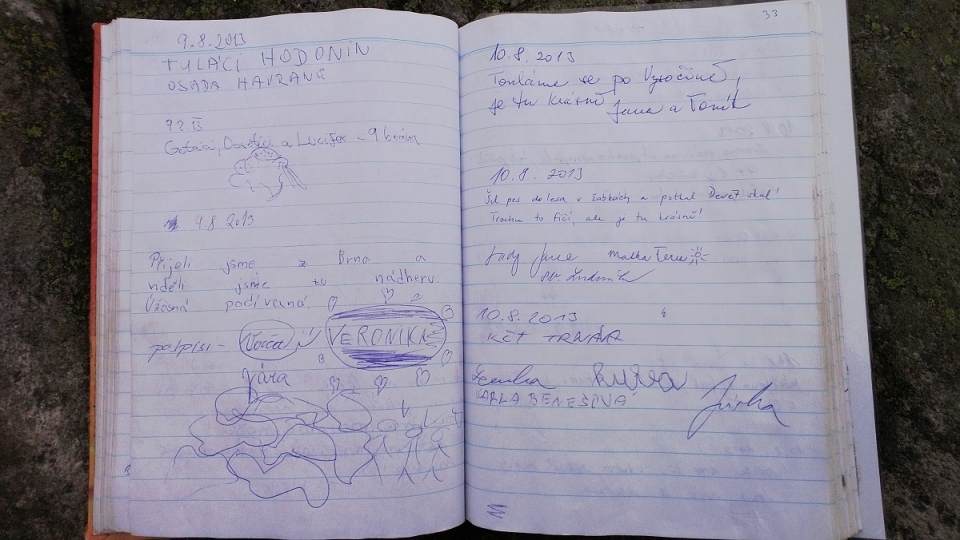 9.8.2013
TULÁCI HODONÍN
OSADA HAVRANŮ
a Lucifer - 9 bran
9.8 2013
Přijeli jsme z Brna a
viděli jsme tu nádheru.
Úžasná podívaná.
potpisi -
VERONIKA
Jára
33
10.8.2013
Touláme se po Vysočině,
je tu krásně Jana a Toník
10.8.2013
Šel pes do lesa v žabkách a potkal Devět skal!
Trochu to fičí, ale je tu krásně!
matka Terez
10.8.2013
KČT TRNÁVA
Lenka
KARLA BENEŠOVÁ
Jirka